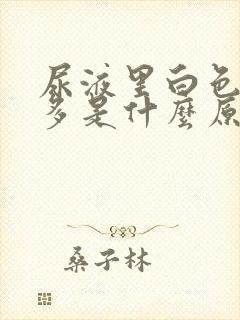 尿液里白色
多是什麼原
桑子林